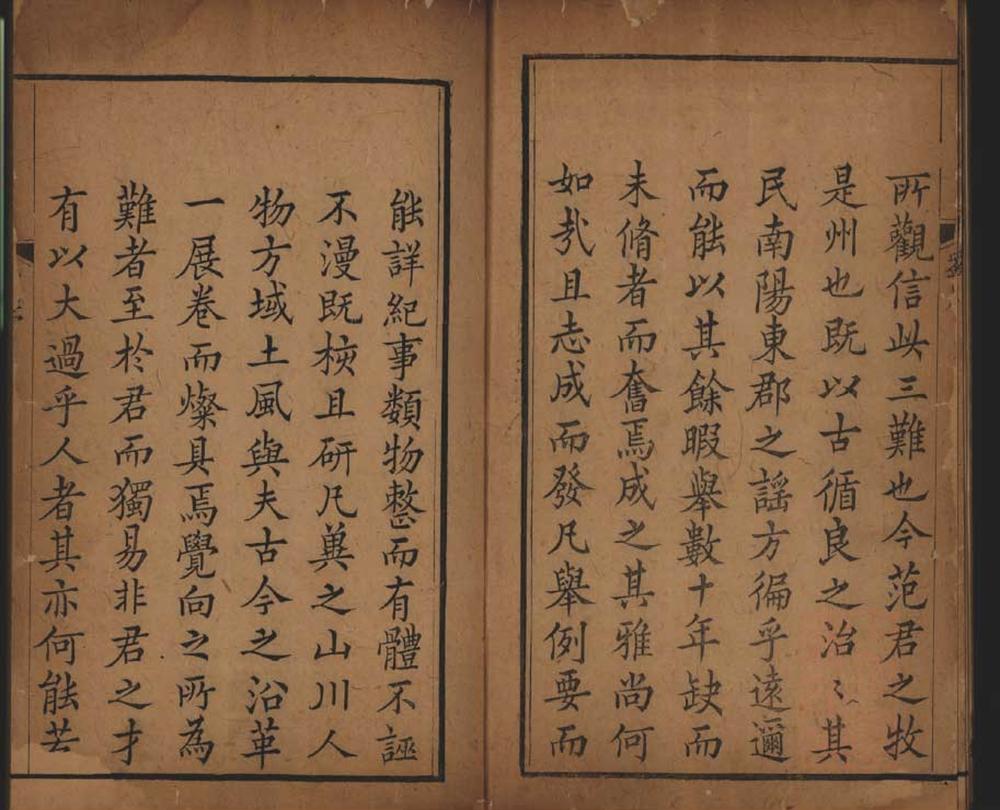 所觀信此三難也今范君之牧
是州也既以古循良之治〻其
民南陽東郡之謡方徧乎遠邇
而能以其餘暇舉數十年缺而
未脩者而奮焉成之其雅尚何
如㢤且志成而發凡舉例要而
能詳紀事類物整而有體不誣
不漫既核且研凡兾之山川人
物方域土風與夫古今之沿革
一展卷而燦具焉覺向之所為
難者至於君而獨易非君之才
有以大過乎人者其亦何能芸